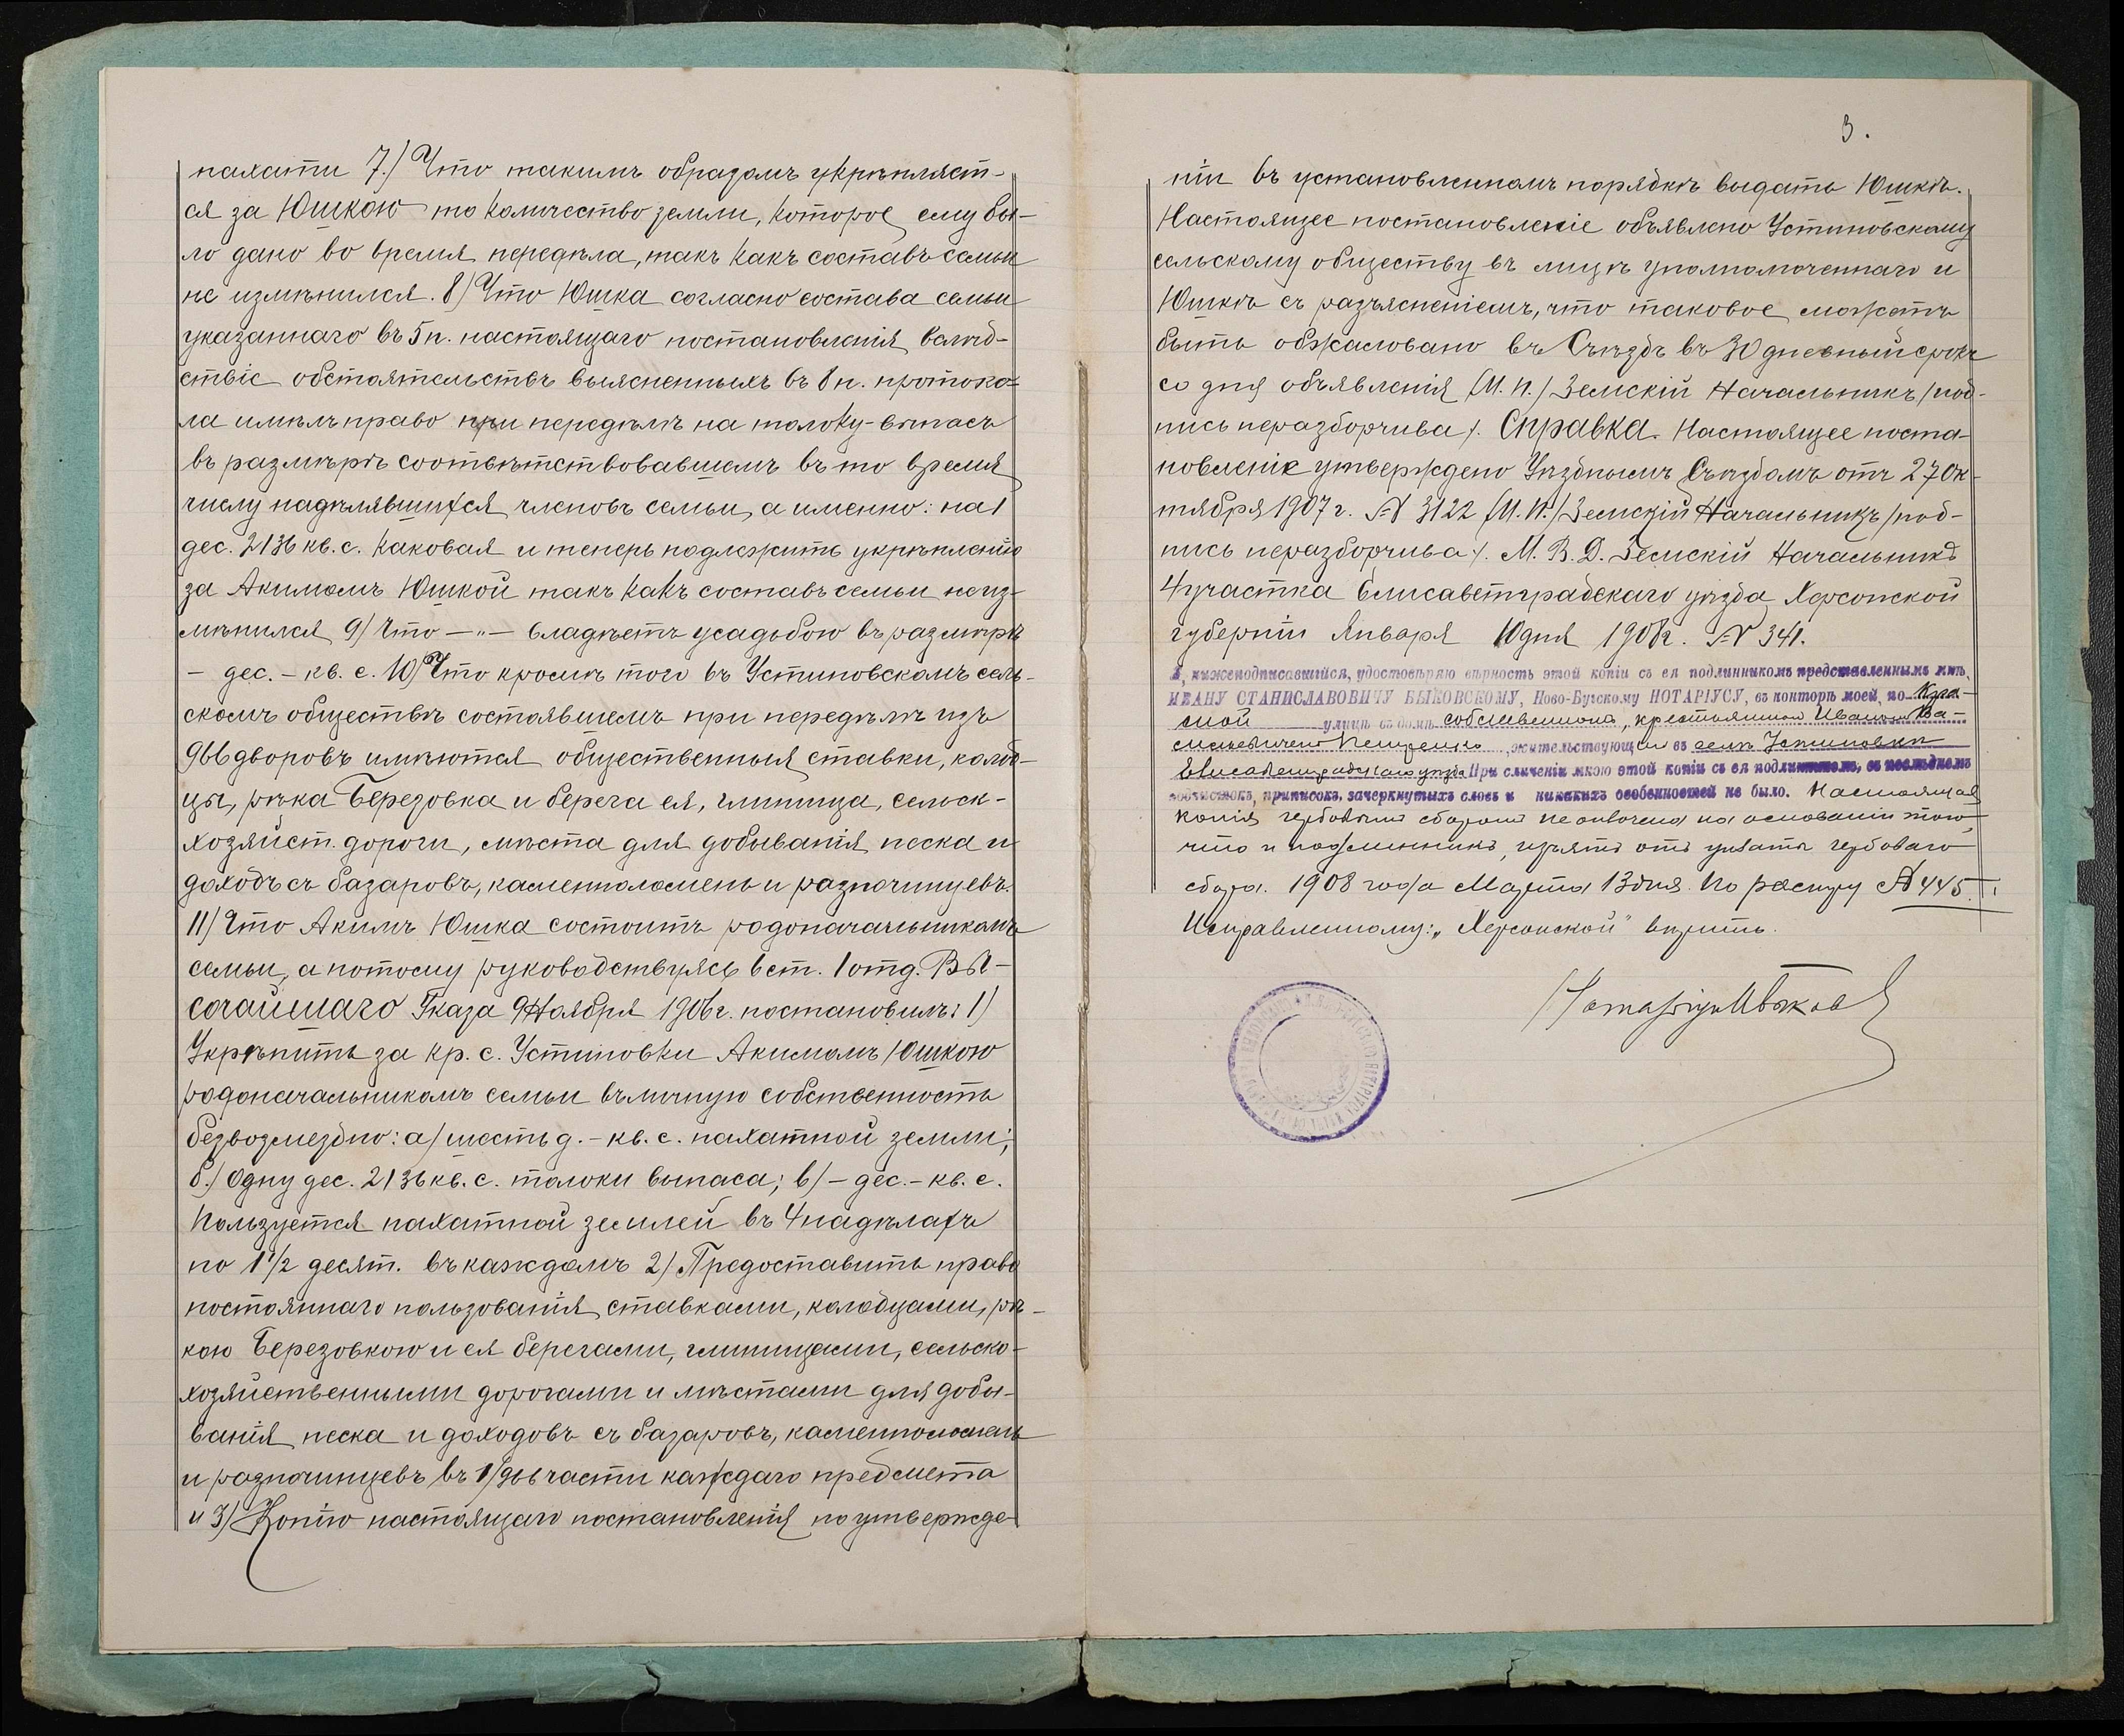 пахати 7.) Что такимъ образомъ укрѣпляет-
ся за Юшкою то количество земли, которое ему бы-
ло дано во время передѣла, такъ какъ составъ семьи
не измѣнился. 8) Что Юшка согласно состава семьи
указаннаго въ 5 п. настоящаго постановленія, вслѣд-
ствіе обстоятельствъ выясненныхъ въ 8 п. протоко-
ла имѣлъ право при передѣлѣ на толоку-выпасъ
въ размѣрѣ соотвѣтствовавшемъ въ то время
числу надѣлявшихся членовъ семьи, а именно: на 1
дес. 2136 кв. с. каковая и теперь подлежитъ укрѣпленію
за Акимомъ Юшкой такъ какъ составъ семьи не из-
мѣнился 9) Что —„— владѣетъ усадьбою въ размѣрѣ
— дес. — кв. с. 10) Что кромѣ того въ Устиновскомъ сель-
скомъ обществѣ состоявшемъ при передѣлѣ изъ
966 дворовъ имѣются общественныя ставки, колод-
цы, рѣка Березовка и берега ея, глинища, сельск-
хозяйст. дороги, мѣста для добыванія песка и
доходъ съ базаровъ, каменоломень и разночинцевъ.
11) Что Акимъ Юшка состоитъ родоначальникомъ
семьи, а потому руководствуясь 6 ст. 1 отд. Вы-
сочайшаго Указа 9 Ноября 1906 г. постановилъ: 1)
Укрѣпить за кр. с. Устиновки Акимомъ Юшкою
родоначальникомъ семьи въ личную собственность
безвозмездно: а) шесть д. — кв. с. пахатной земли;
б.) Одну дес. 2136 кв. с. толоки выпаса; в) — дес. — кв. с.
Пользуется пахатной землей въ 4 надѣлахъ
по 1 1/2 десят. въ каждомъ 2) Предоставить право
постояннаго пользованія ставками, колодцами, рѣ-
кою Березовкою и ея берегами, глинищами, сельско-
хозяйственными дорогами и мѣстами для добы-
ванія песка и доходовъ съ базаровъ, каменоломень
и разночинцевъ въ 1/966 части каждаго предмета
и 3) Копію настоящаго постановленія по утвержде-
3.
ніи въ установленномъ порядкѣ выдать Юшкѣ.
Настоящее постановленіе объявлено Устиновскому
сельскому обществу въ лицѣ уполномоченнаго и
Юшкѣ съ разъясненіемъ, что таковое можетъ
быть обжаловано въ Съѣздъ въ 30 дневный срокъ
со дня объявленія (М. П.) Земскій Начальникъ (под-
пись неразборчива). Справка. Настоящее поста-
новленіе утверждено Уѣзднымъ Съѣздомъ отъ 27 Ок-
тября 1907 г. № 3122 (М. П.) Земскій Начальникъ (под-
пись неразборчива). М. В. Д. Земскій Начальникъ
4 участка Елисаветградскаго уѣзда Херсонской
губерніи Января 10 дня 1908 г. № 341.
Я, нижеподписавшійся, удостовѣряю вѣрность этой копіи съ ея подлинникомъ представленнымъ мнѣ,
ИВАНУ СТАНИСЛАВОВИЧУ БЫКОВСКОМУ, Ново-Бугскому НОТАРІУСУ, въ конторѣ моей, по Кра-
сной улицѣ въ домѣ собственномъ, крестьяниномъ Иваномъ Ва-
сильевичемъ Петренко, жительствующимъ въ селѣ Устиновкѣ
Елисаветградскаго уѣзда При сличеніи мною этой копіи съ ея подлинникомъ, въ послѣднемъ
подчистокъ, приписокъ, зачеркнутыхъ словъ и никакихъ особенностей не было. Настоящая
копія гербовымъ сборомъ не оплочена на основаніи того,
что и подлинникъ, изъятъ отъ уплаты гербоваго
сбора. 1908 года Марта 13 дня. По реестру № 445.
Исправленному: „Херсонской" вѣрить.
Нотаріусъ